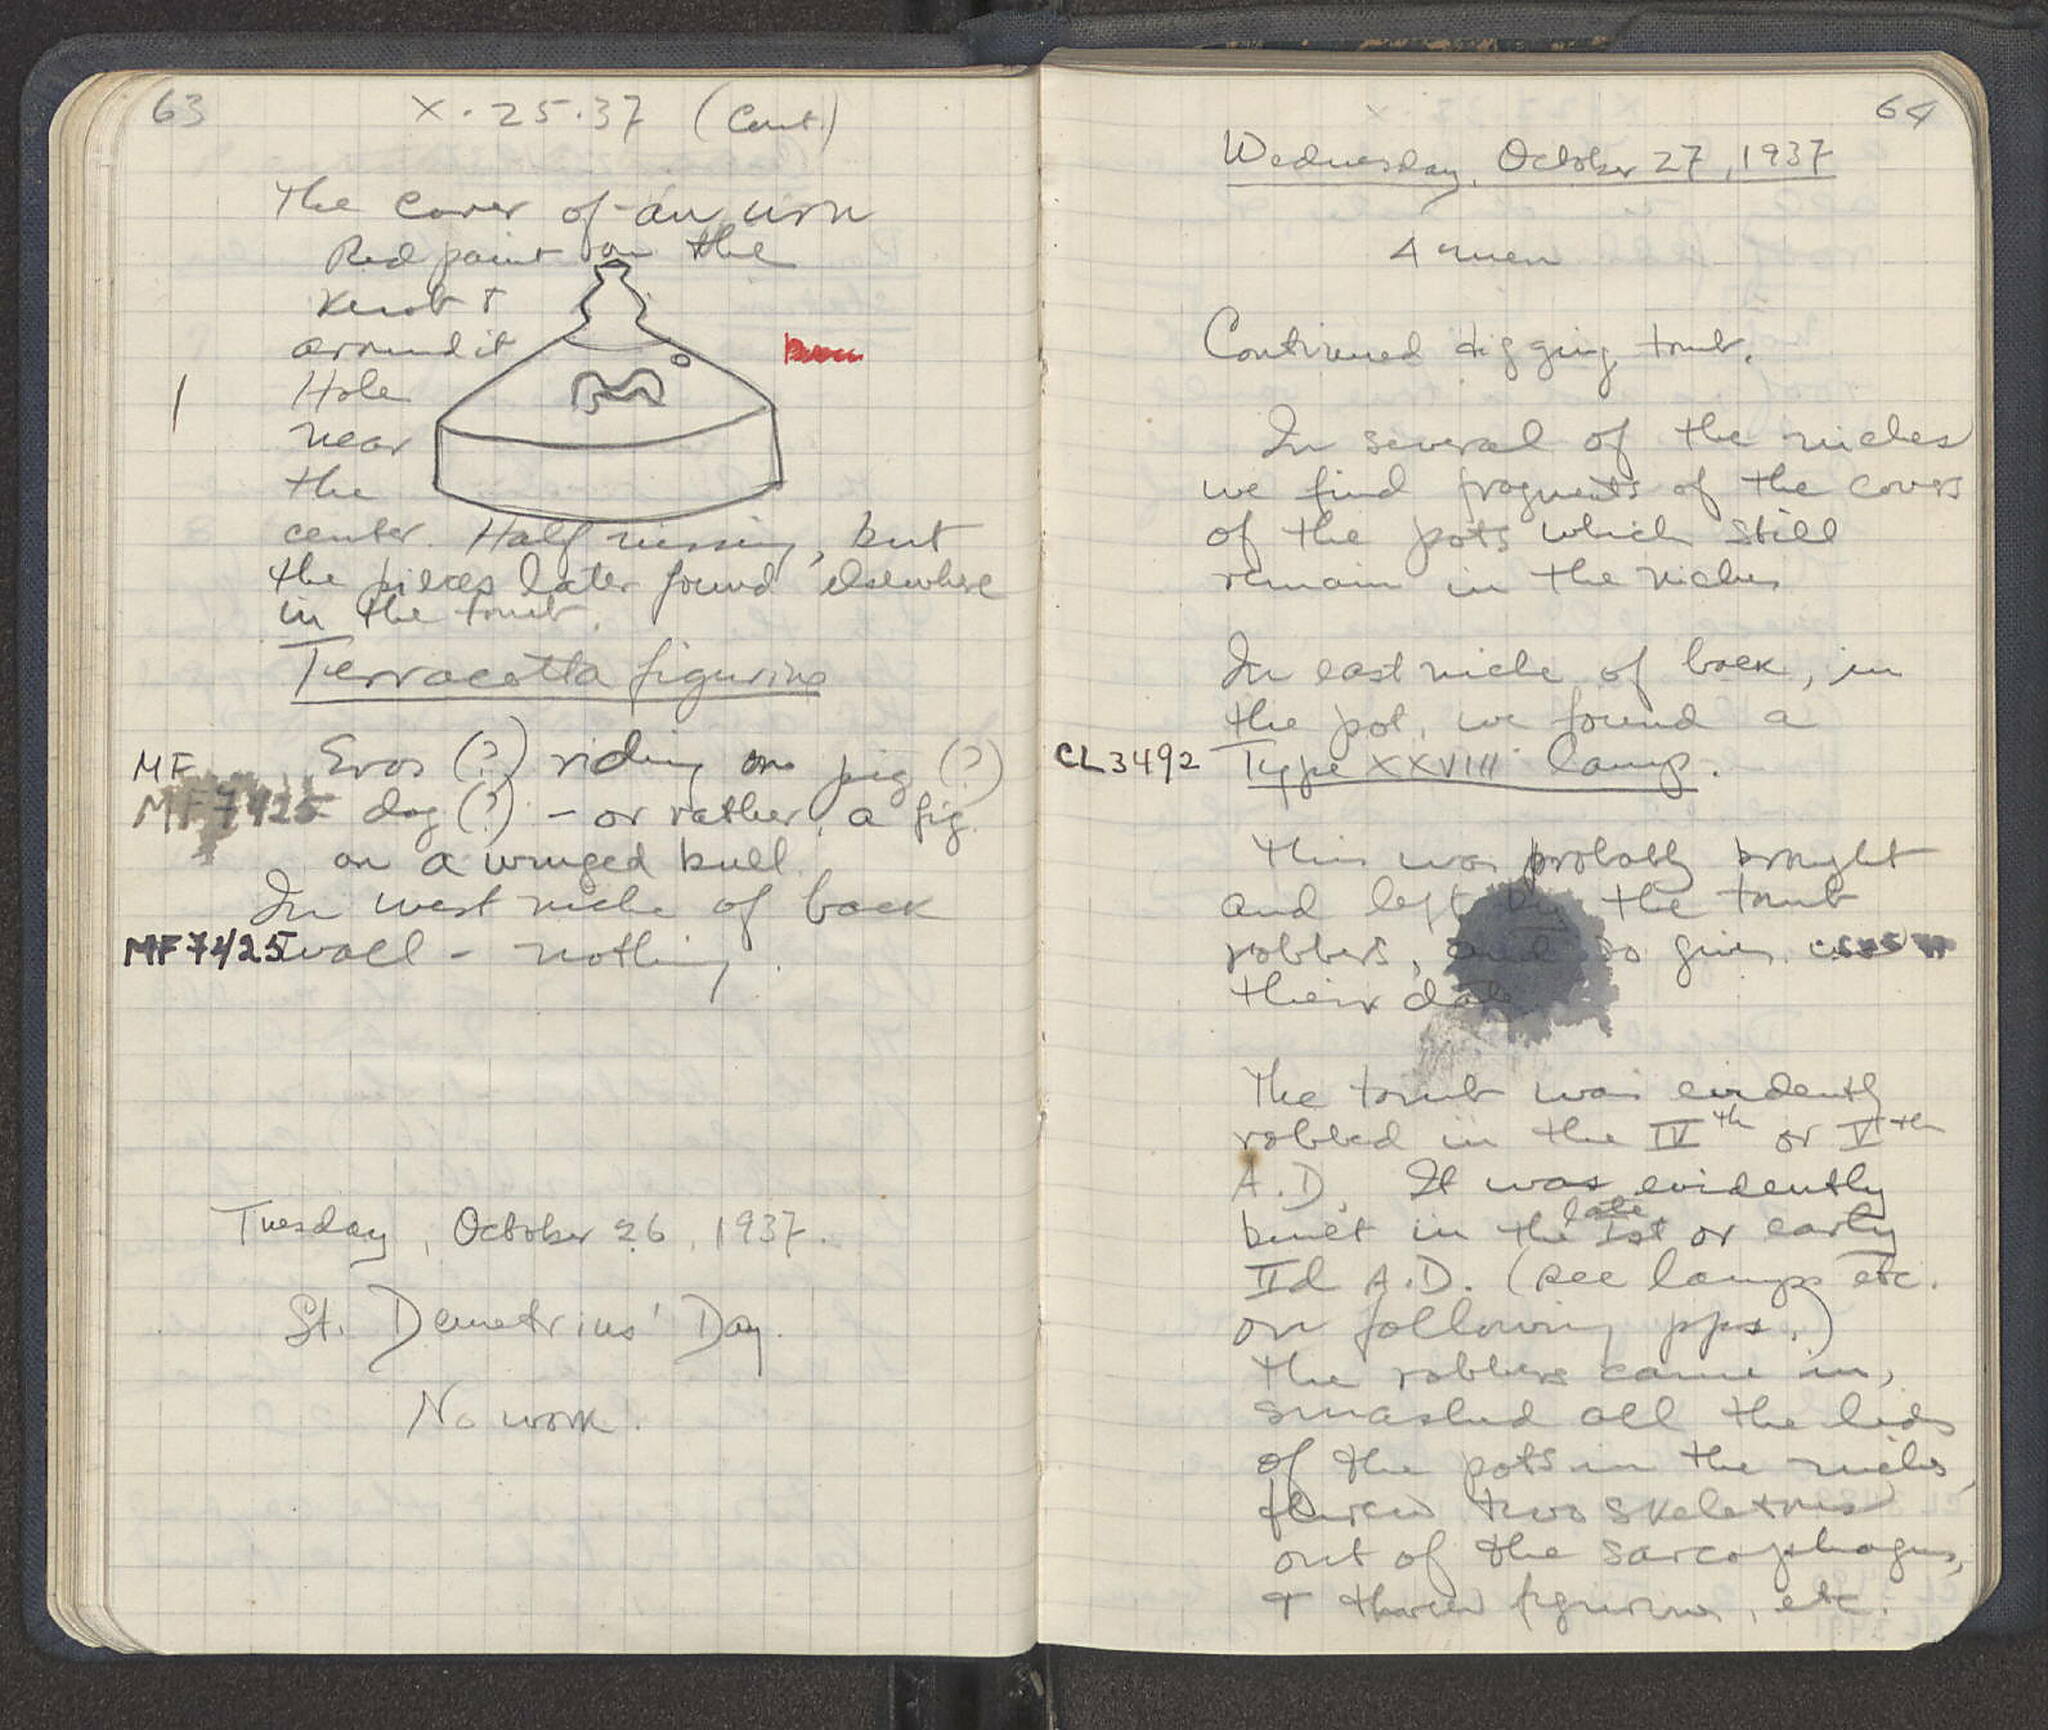 63
X.25.37 (Cont.)
The cover of an urn
Red paint on the
knob +
around it
Hole
1
near
the
center. Half missing, but
the pieces later found elsewhere
in the tomb.
Terracotta figurine
MF Eros (?) riding on pig (?)
MF7425 dog (?) - or rather, a fig.
on a winged bull.
In west niche of back
MF7425 wall - nothing.
Tuesday, October 26, 1937.
St. Demetrius' Day.
No work.
64
Wednesday, October 27, 1937
4 men
Continued digging tomb.
In several of the niches
we find fragments of the covers
of the pots which still
remain in the niches
In east niche of back, in
the pot, we found a
CL3492 Type XXVIII lamp.
This was probably brought
and left by the tomb
robbers, and so gives us
their date
The tomb was evidently
robbed in the IVth or Vth
A.D. It was evidently
built in the late Ist or early
IId A.D. (see lamps etc.
on following pps.)
The robbers came in,
smashed all the lids
of the pots in the niches,
threw two skeletons
out of the sarcophagus,
+ threw figurines, etc.